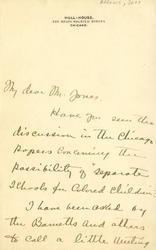 HULL-HOUSE.
335 SOUTH HALSTED STREET
CHICAGO.
My dear Mr. Jones.
Have you seen the
discussion in the Chicago
Papers concerning the
possibility of "separate
Schools for Colored Children"
I have been asked by
the Barnetts and others
to call a little meeting